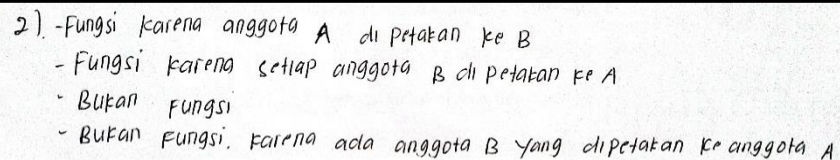 2). - Fungsi karena anggota A di petakan ke B
- Fungsi karena setiap anggota B di petakan ke A
- Bukan Fungsi
- Bukan Fungsi. karena ada anggota B yang dipetakan ke anggota A